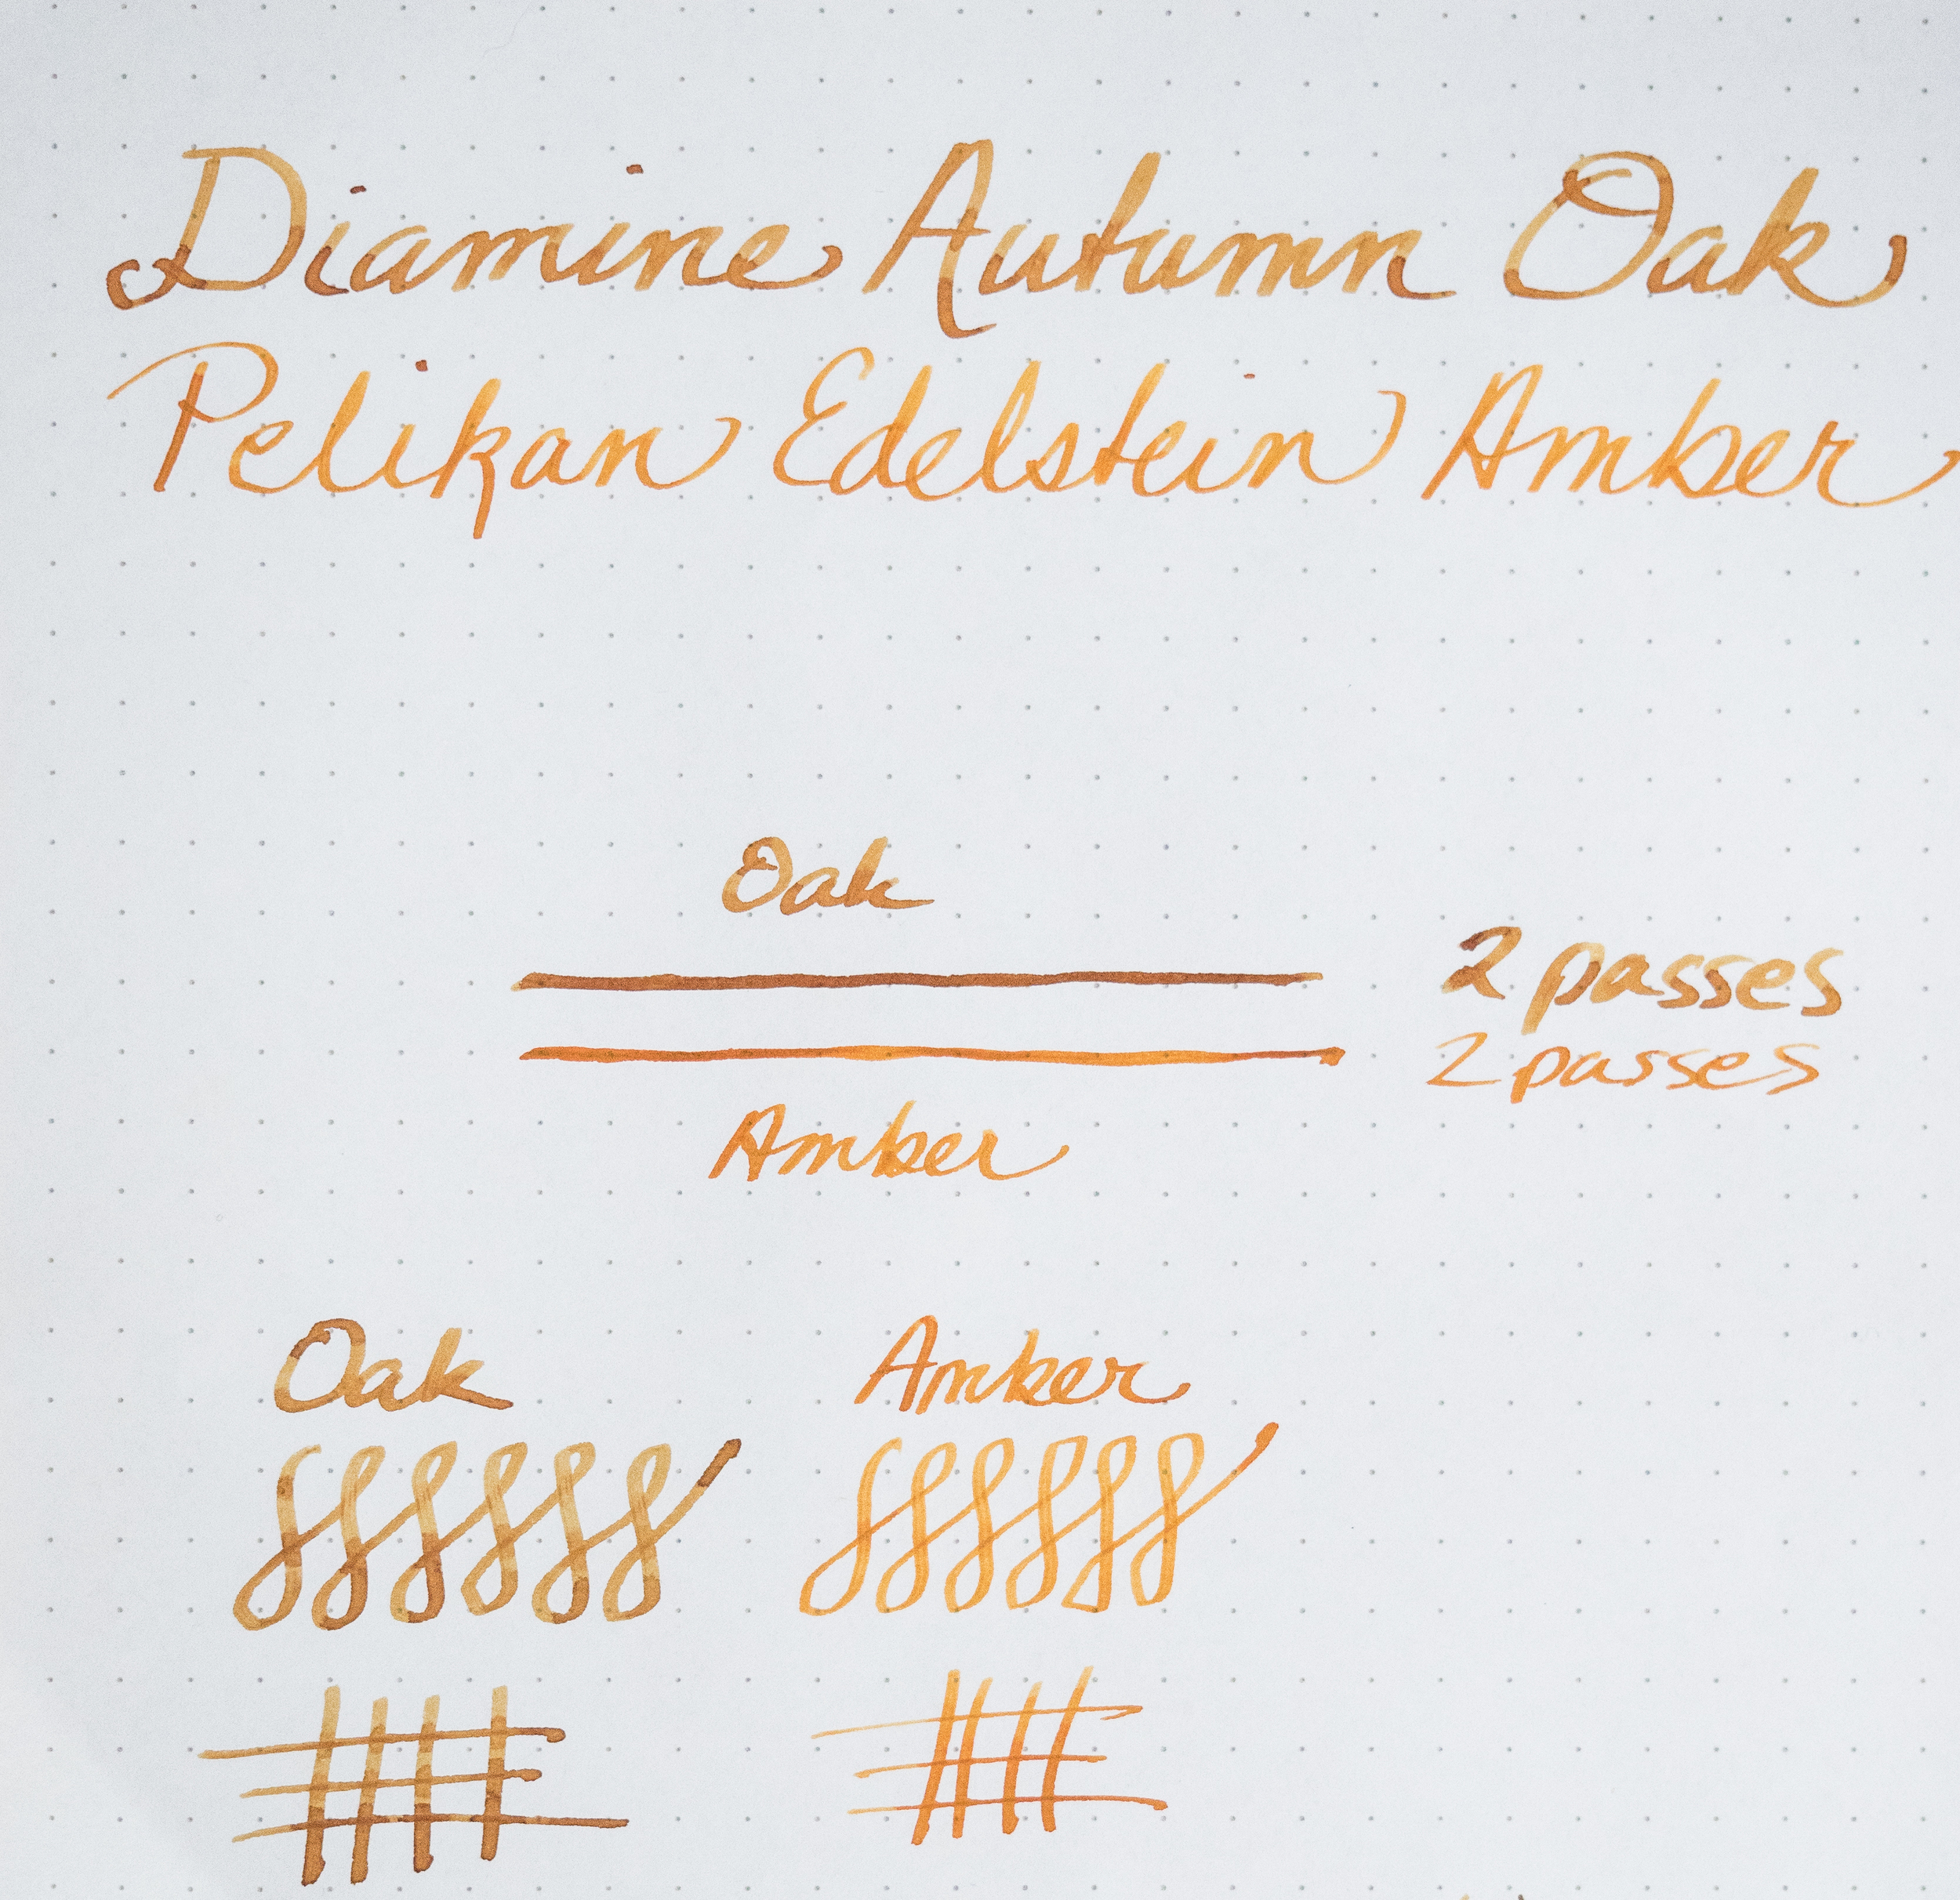 Diamine Autumn Oak
Pelikan Edelstein Amber
Oak
2 passes
2 passes
Amber
Oak Amber